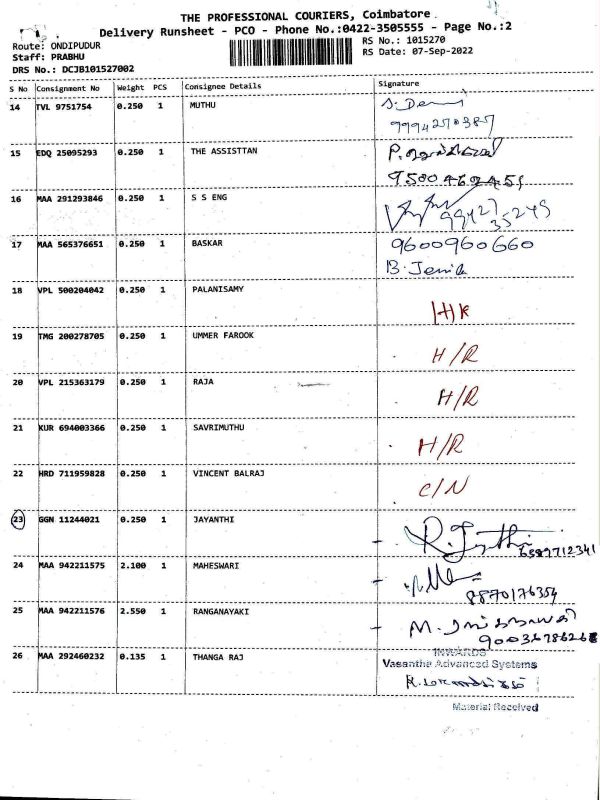 THE PROFESSIONAL COURIERS, Coimbatore
Delivery Runsheet - PCO - Phone No.:0422-3505555 - Page No.:2
Route: ONDIPUDUR
RS No.: 1015270
Staff: PRABHU
RS Date: 07-Sep-2022
DRS No.: DCJB101527002
S No Consignment No Weight PCS Consignee Details Signature
14 TVL 9751754 0.250 1 MUTHU
9994270387
15 EDQ 25095293 0.250 1 THE ASSISTTAN
16 MAA 291293846 0.250 1 S S ENG
99427
35249
17 MAA 565376651 0.250 1 BASKAR 9600960660
B. Jenila
18 VPL 500204042 0.250 1 PALANISAMY
H/R
19 TMG 200278705 0.250 1 UMMER FAROOK
H/R
20 VPL 215363179 0.250 1 RAJA
H/R
21 KUR 694003366 0.250 1 SAVRIMUTHU
H/R
22 HRD 711959828 0.250 1 VINCENT BALRAJ
C/N
23 GGN 11244021 0.250 1 JAYANTHI
24 MAA 942211575 2.100 1 MAHESWARI
8870176354
25 MAA 942211576 2.550 1 RANGANAYAKI
INWARDS
26 MAA 292460232 0.135 1 THANGA RAJ
Vasantha Advanced Systems
Material Received